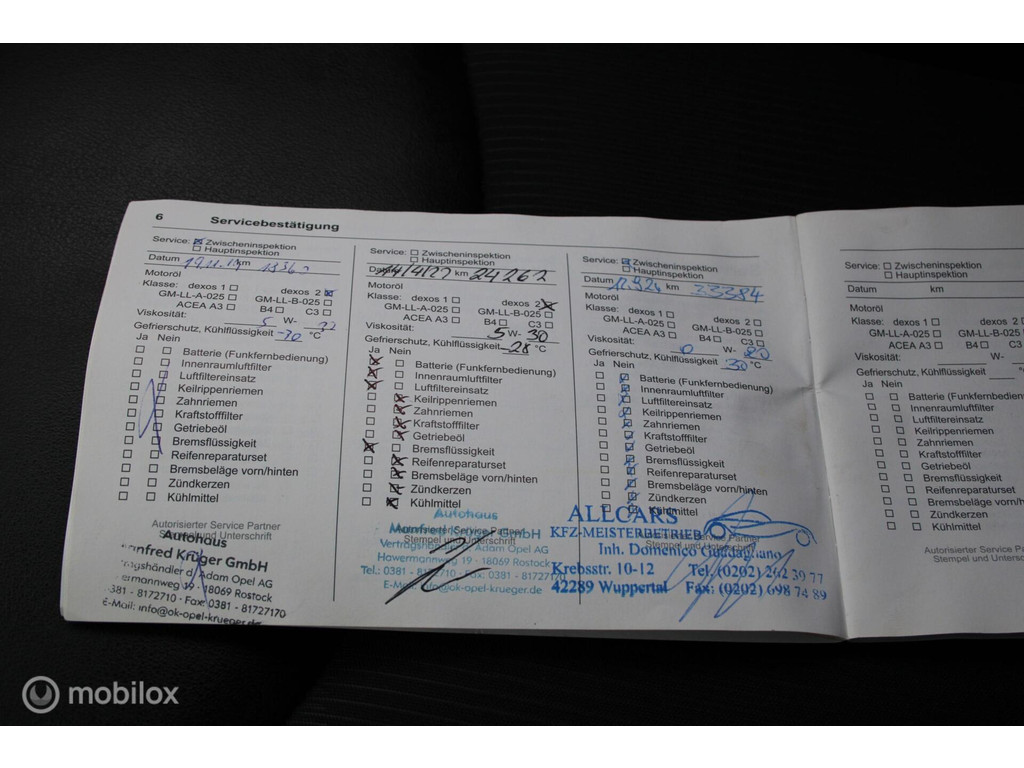 6 Servicebestätigung
Service: Zwischeninspektion
Hauptinspektion
Datum km
Motoröl
Klasse: dexos 1 dexos 2
GM-LL-A-025 GM-LL-B-025
ACEA A3 B4 C3
Viskosität: 5 W-
Gefrierschutz, Kühlflüssigkeit °C
Ja Nein
Batterie (Funkfernbedienung)
Innenraumluftfilter
Luftfiltereinsatz
Keilrippenriemen
Zahnriemen
Kraftstofffilter
Getriebeöl
Bremsflüssigkeit
Reifenreparaturset
Bremsbeläge vorn/hinten
Zündkerzen
Kühlmittel
Autorisierter Service Partner
Stempel und Unterschrift
Autohaus
Manfred Krüger GmbH
Adam Opel AG
19 · 18069 Rostock
381 - 8172710 · Fax: 0381 - 81727170
E-Mail: info@ok-opel-krueger.de
Service: Zwischeninspektion
Hauptinspektion
km 24262
Motoröl
Klasse: dexos 1 dexos 2
GM-LL-A-025 GM-LL-B-025
ACEA A3 B4 C3
Viskosität: 5 W- 30
Gefrierschutz, Kühlflüssigkeit -28 °C
Ja Nein
Batterie (Funkfernbedienung)
Innenraumluftfilter
Luftfiltereinsatz
Keilrippenriemen
Zahnriemen
Kraftstofffilter
Getriebeöl
Bremsflüssigkeit
Reifenreparaturset
Bremsbeläge vorn/hinten
Zündkerzen
Kühlmittel
Autohaus
Manfred Krüger GmbH
Stempel und Unterschrift
Adam Opel AG
Hawermannweg 19 · 18069 Rostock
Tel.: 0381 - 8172710 · Fax: 0381 - 81727170
E-Mail: info@ok-opel-krueger.de
Service: Zwischeninspektion
Hauptinspektion
Datum km
Motoröl
Klasse: dexos 1 dexos 2
GM-LL-A-025 GM-LL-B-025
ACEA A3 B4 C3
Viskosität: W-
Gefrierschutz, Kühlflüssigkeit 30 °C
Ja Nein
Batterie (Funkfernbedienung)
Innenraumluftfilter
Luftfiltereinsatz
Keilrippenriemen
Zahnriemen
Kraftstofffilter
Getriebeöl
Bremsflüssigkeit
Reifenreparaturset
Bremsbeläge vorn/hinten
Zündkerzen
Kühlmittel
ALLCARS
KFZ-MEISTERBETRIEB
Inh. Domenico Guadagnano
Krebsstr. 10-12 Tel. (0202) 262 39 77
42289 Wuppertal Fax: (0202) 698 74 89
Service: Zwischeninspektion
Hauptinspektion
Datum km
Motoröl
Klasse: dexos 1 dexos 2
GM-LL-A-025 GM-LL-B-025
ACEA A3 B4 C3
Viskosität: W-
Gefrierschutz, Kühlflüssigkeit °C
Ja Nein
Batterie (Funkfernbe
Innenraumluftfilter
Luftfiltereinsatz
Keilrippenriemen
Zahnriemen
Kraftstofffilter
Getriebeöl
Bremsflüssigkeit
Reifenreparaturset
Bremsbeläge vorn/hinten
Zündkerzen
Kühlmittel
Autorisierter Service
Stempel und
mobilox